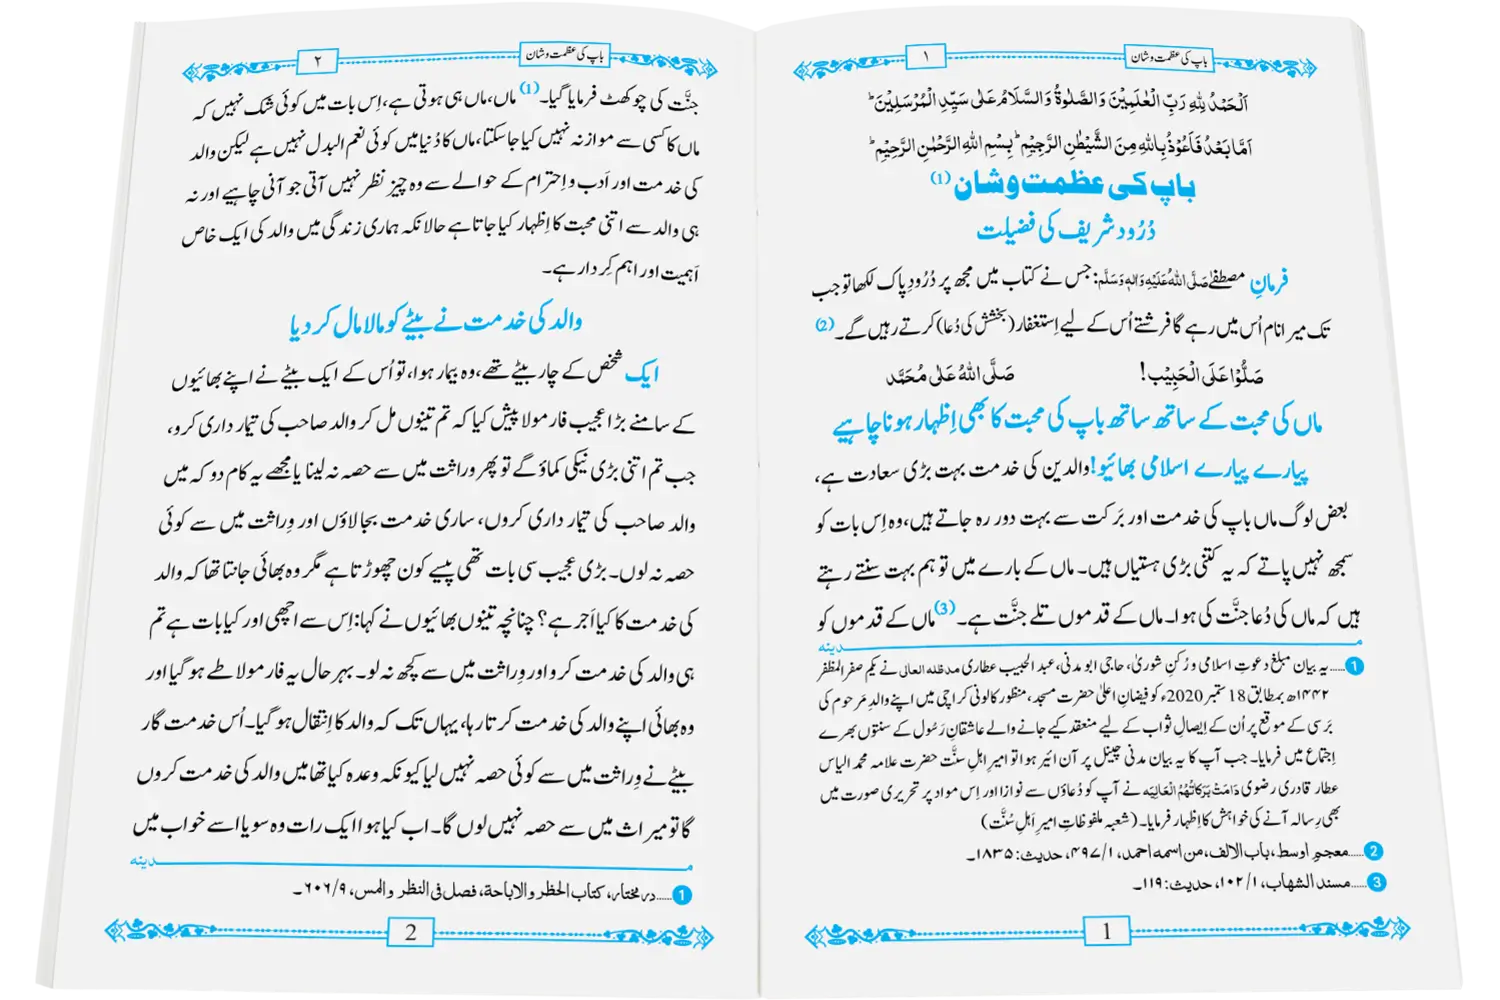 باپ کی عظمت و شان
۱
اَلْحَمْدُ لِلّٰهِ رَبِّ الْعٰلَمِیْنَ وَالصَّلٰوةُ وَالسَّلَامُ عَلٰی سَیِّدِ الْمُرْسَلِیْنَ ؕ
اَمَّا بَعْدُ فَاَعُوْذُ بِاللّٰهِ مِنَ الشَّیْطٰنِ الرَّجِیْمِ ؕ بِسْمِ اللّٰهِ الرَّحْمٰنِ الرَّحِیْمِ ؕ
باپ کی عظمت و شان (1)
دُرُود شریف کی فضیلت
فرمانِ مصطفےٰ صَلَّی اللّٰهُ عَلَیْهِ وَاٰلِهٖ وَسَلَّم: جس نے کتاب میں مجھ پر دُرُودِ پاک لکھا تو جب
تک میرا نام اُس میں رہے گا فرشتے اُس کے لیے اِستغفار (بخشش کی دُعا) کرتے رہیں گے۔ (2)
صَلُّوْا عَلَی الْحَبِیْب! صَلَّی اللّٰهُ عَلٰی مُحَمَّد
ماں کی محبت کے ساتھ ساتھ باپ کی محبت کا بھی اِظہار ہونا چاہیے
پیارے پیارے اسلامی بھائیو! والدین کی خدمت بہت بڑی سعادت ہے،
بعض لوگ ماں باپ کی خدمت اور بَرکت سے بہت دور رہ جاتے ہیں، وہ اِس بات کو
سمجھ نہیں پاتے کہ یہ کتنی بڑی ہستیاں ہیں۔ ماں کے بارے میں تو ہم بہت سنتے رہتے
ہیں کہ ماں کی دُعا جنَّت کی ہوا۔ ماں کے قدموں تلے جنَّت ہے۔ (3) ماں کے قدموں کو
مـــدینہ
1 .....یہ بیان مبلغِ دعوتِ اسلامی و رُکنِ شوریٰ، حاجی ابو مدنی، عبد الحبیب عطاری مدظلہ العالی نے یکم صفر المظفر
۱۴۴۲ھ بمطابق 18 ستمبر 2020ء کو فیضانِ اعلیٰ حضرت مسجد، منظور کالونی کراچی میں اپنے والدِ مَرحوم کی
بَرسی کے موقع پر اُن کے اِیصالِ ثواب کے لیے منعقد کیے جانے والے عاشقانِ رَسُول کے سنتوں بھرے
اِجتماع میں فرمایا۔ جب آپ کا یہ بیان مدنی چینل پر آن ائیر ہوا تو امیرِ اہلِ سنَّت حضرت علامہ محمد الیاس
عطار قادری رضوی دَامَتْ بَرَکَاتُہُمُ الْعَالِیَہ نے آپ کو دُعاؤں سے نوازا اور اِس مواد پر تحریری صورت میں
بھی رِسالہ آنے کی خواہش کا اِظہار فرمایا۔ (شعبہ ملفوظاتِ امیرِ اَہلِ سُنَّت)
2 .....معجم اوسط، باب الالف، من اسمه احمد، ۱/ ۴۹۷، حدیث: ۱۸۳۵۔
3 .....مسند الشهاب، ۱/ ۱۰۲، حدیث: ۱۱۹۔
1
باپ کی عظمت و شان
۲
جنَّت کی چوکھٹ فرمایا گیا۔ (1) ماں، ماں ہی ہوتی ہے، اِس بات میں کوئی شک نہیں کہ
ماں کا کسی سے موازنہ نہیں کیا جاسکتا، ماں کا دُنیا میں کوئی نعم البدل نہیں ہے لیکن والد
کی خدمت اور اَدب و اِحترام کے حوالے سے وہ چیز نظر نہیں آتی جو آنی چاہیے اور نہ
ہی والد سے اتنی محبت کا اِظہار کیا جاتا ہے حالانکہ ہماری زندگی میں والد کی ایک خاص
اَہمیت اور اہم کِردار ہے۔
والد کی خدمت نے بیٹے کو مالا مال کر دیا
ایک شخص کے چار بیٹے تھے، وہ بیمار ہوا، تو اُس کے ایک بیٹے نے اپنے بھائیوں
کے سامنے بڑا عجیب فارمولا پیش کیا کہ تم تینوں مل کر والد صاحب کی تیمار داری کرو،
جب تم اتنی بڑی نیکی کماؤ گے تو پھر وراثت میں سے حصہ نہ لینا یا مجھے یہ کام دو کہ میں
والد صاحب کی تیمار داری کروں، ساری خدمت بجا لاؤں اور وِراثت میں سے کوئی
حصہ نہ لوں۔ بڑی عجیب سی بات تھی پیسے کون چھوڑتا ہے مگر وہ بھائی جانتا تھا کہ والد
کی خدمت کا کیا اَجر ہے؟ چنانچہ تینوں بھائیوں نے کہا: اِس سے اچھی اور کیا بات ہے تم
ہی والد کی خدمت کرو اور وِراثت میں سے کچھ نہ لو۔ بہر حال یہ فارمولا طے ہو گیا اور
وہ بھائی اپنے والد کی خدمت کرتا رہا، یہاں تک کہ والد کا اِنتقال ہو گیا۔ اُس خدمت گار
بیٹے نے وِراثت میں سے کوئی حصہ نہیں لیا کیونکہ وعدہ کیا تھا میں والد کی خدمت کروں
گا تو میراث میں سے حصہ نہیں لوں گا۔ اب کیا ہوا ایک رات وہ سویا اسے خواب میں
مـــدینہ
1 .....در مختار، کتاب الحظر والاباحة، فصل فی النظر والمس، ۹/ ۶۰۶۔
2